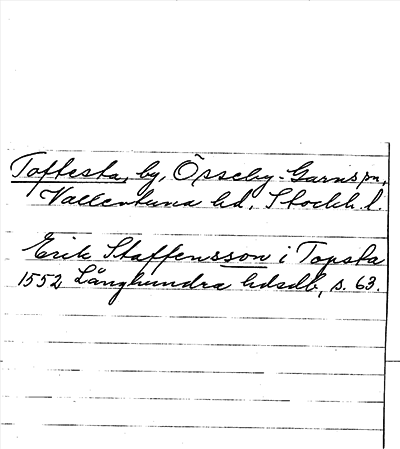 Toftesta, by, Össeby-Garns sn,
Vallentuna hd, Stockh. l.
Erik Staffensson i Topsta
1552 Långhundra hdsdb, s. 63.